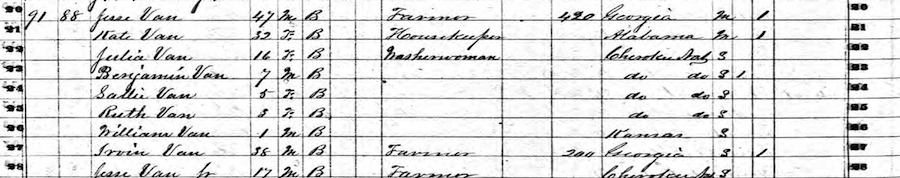 20 91 88 Jesse Van 47 M B Farmer 420 Georgia M 1 20
21 Kate Van 32 F B Housekeeper Alabama M 1 21
22 Julia Van 16 F B Washerwoman Cherokee Nat S 22
23 Benjamin Van 7 M B do do S 1 23
24 Sallie Van 5 F B do do S 24
25 Ruth Van 3 F B do do S 25
26 William Van 1 M B Kansas S 26
27 Irvin Van 38 M B Farmer 200 Georgia S 1 27
28 Jesse Van Jr 17 M B Farmer Cherokee Nat S 28